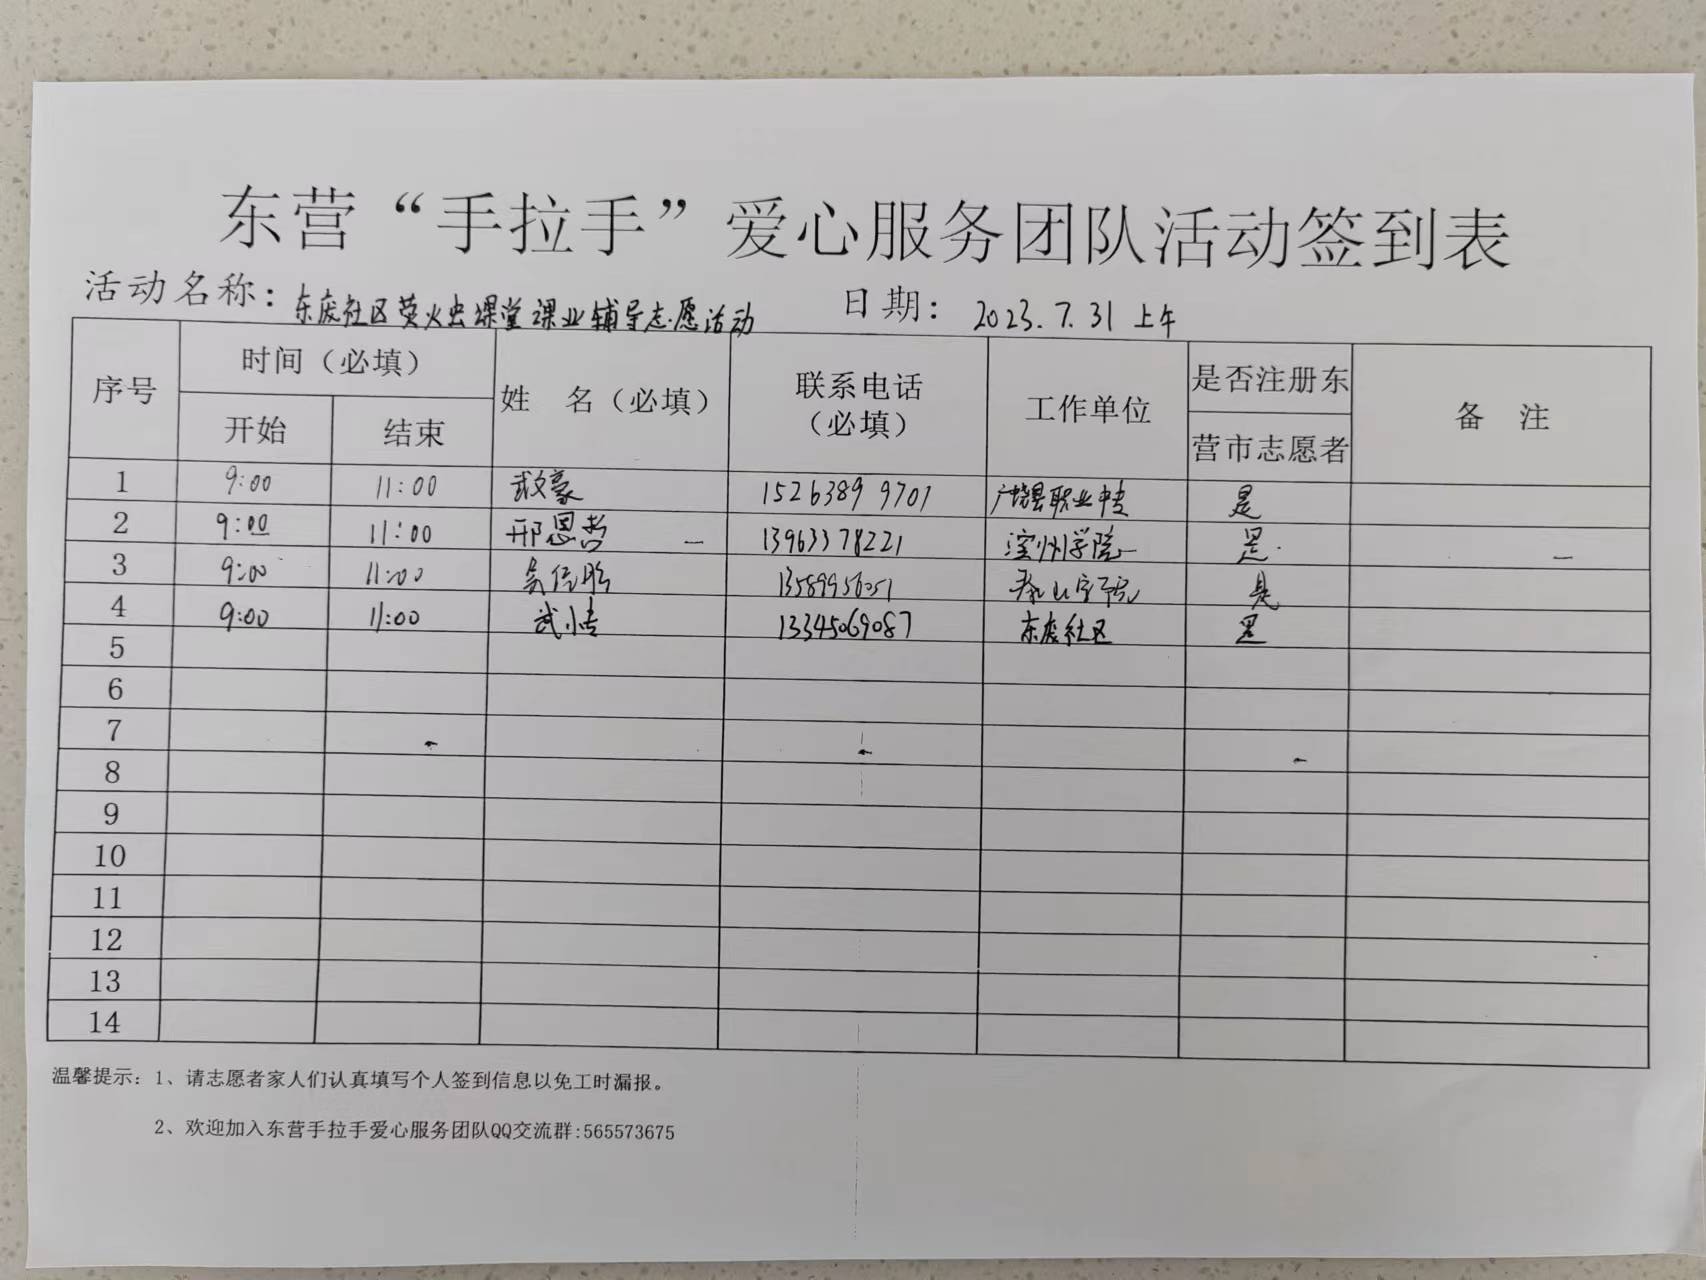 东营“手拉手”爱心服务团队活动签到表
活动名称：东庞社区萤火虫课堂课业辅导志愿活动 日期：2023.7.31 上午
序号 时间（必填） 姓 名（必填） 联系电话（必填） 工作单位 是否注册东营市志愿者 备 注
开始 结束
1 9:00 11:00 武文豪 15263899701 广饶县职业中专 是
2 9:00 11:00 邢恩哲 13963378221 滨州学院 是
3 9:00 11:00 13589956051 是
4 9:00 11:00 武小 13345069087 东庞社区 是
5
6
7
8
9
10
11
12
13
14
温馨提示：1、请志愿者家人们认真填写个人签到信息以免工时漏报。
2、欢迎加入东营手拉手爱心服务团队QQ交流群:565573675